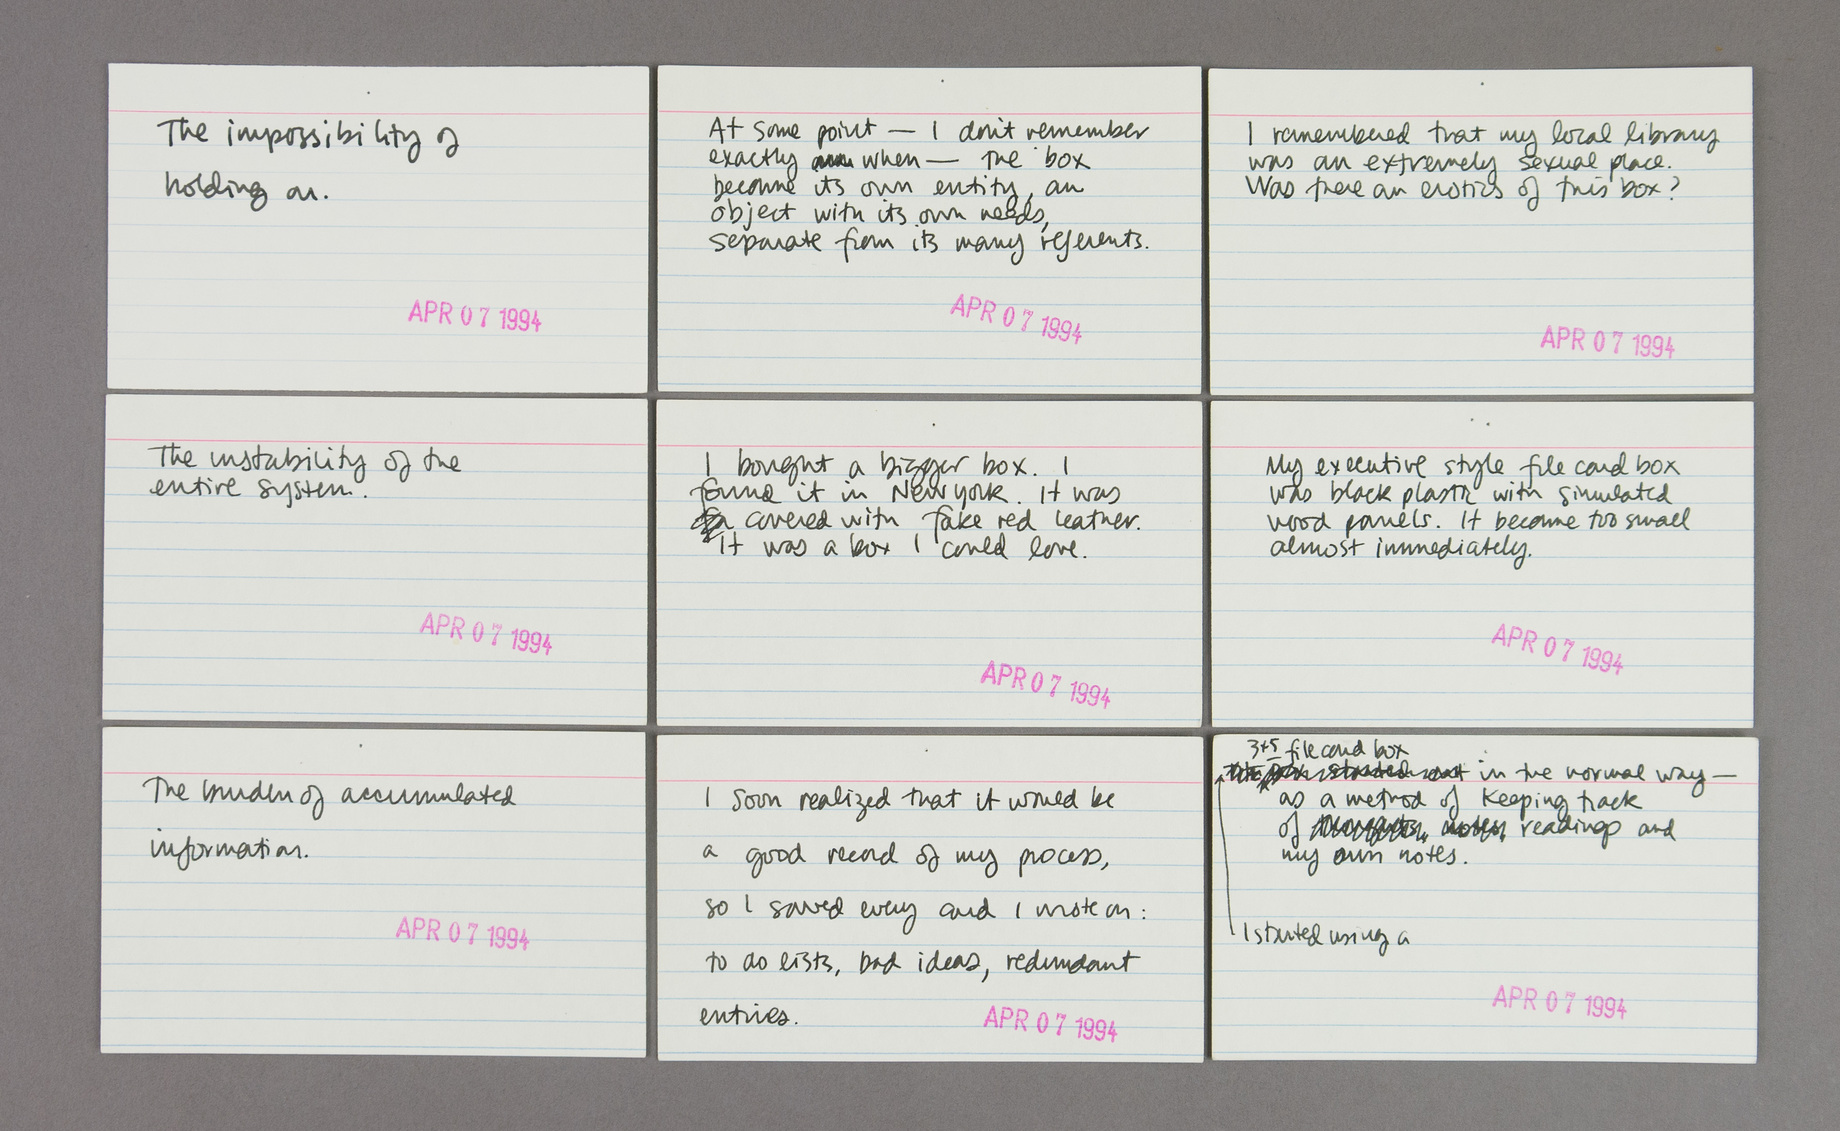 The impossibility of
holding on.
APR 07 1994
At some point — I don't remember
exactly when — the box
became its own entity, an
object with its own needs,
separate from its many referents.
APR 07 1994
I remembered that my local library
was an extremely sexual place.
Was there an erotics of this box?
APR 07 1994
The instability of the
entire system.
APR 07 1994
I bought a bigger box. I
found it in New York. It was
covered with fake red leather.
It was a box I could love.
APR 07 1994
My executive style file card box
was black plastic with simulated
wood panels. It became too small
almost immediately.
APR 07 1994
The burden of accumulated
information.
APR 07 1994
I soon realized that it would be
a good record of my process,
so I saved every card I wrote on:
to do lists, bad ideas, redundant
entries.
APR 07 1994
3x5 file card box
in the normal way —
as a method of keeping track
of readings and
my own notes.
I started using a
APR 07 1994